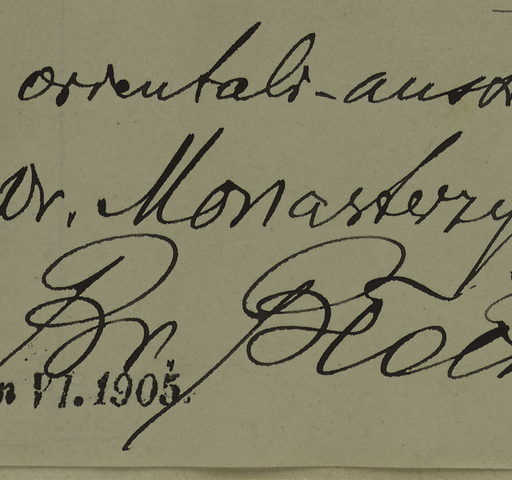 orientali-aust
Dr. Monasterzy
Br. Błoc
n VI. 1905.